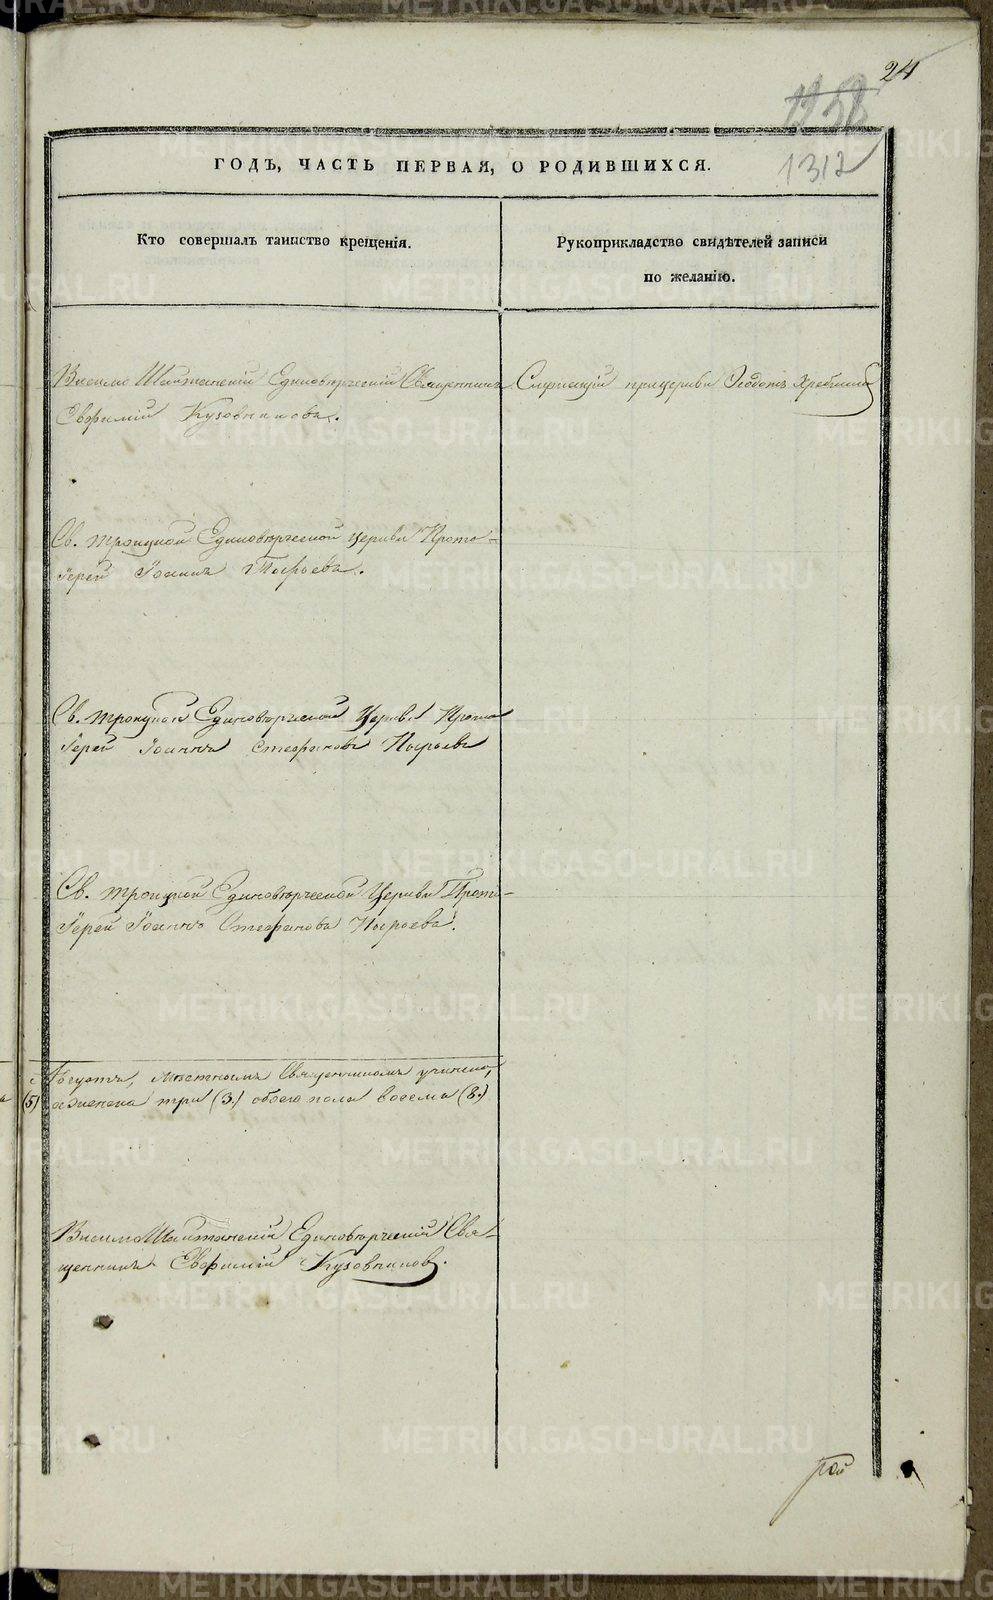 24
1312
ГОДЪ, ЧАСТЬ ПЕРВАЯ, О РОДИВШИХСЯ.
Кто совершалъ таинство крещенія.
Рукоприкладство свидѣтелей записи
по желанію.
Висимо Шайтанскій Единовѣрческій Священникъ
Евфимій Кузовниковъ.
Служащій Хребтинъ
Св. Троицкой Единовѣрческой Церкви Прото-
Іерей Іоаннъ Пырьевъ.
Св. Троицкой Единовѣрческой Церкви Прото
Іерей Іоаннъ Стефановъ Пырьевъ
Св. Троицкой Единовѣрческой Церкви Прото-
Іерей Іоаннъ Стефановъ Пырьевъ.
Августъ, мѣстнымъ Священникомъ учинена,
(5) а женска три (3.) обоего пола восемь (8.)
Висимо Шайтанскій Единовѣрческій Свя-
щенникъ Евфимій Кузовниковъ.
METRIKI.GASO-URAL.RU